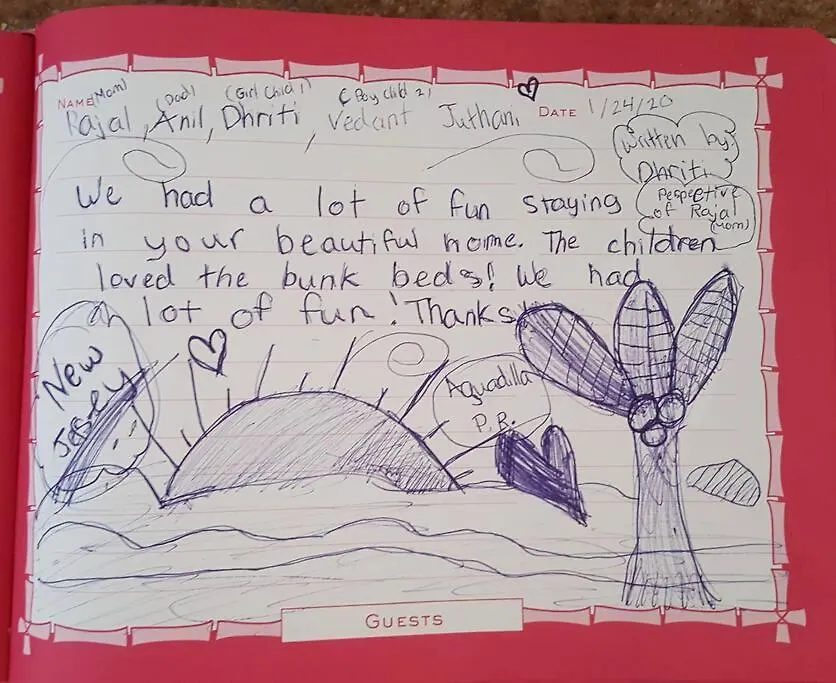 (Mom) (Dad) (Girl Child 1) (Boy Child 2)
NAME Rajal, Anil, Dhriti, Vedant Juthani DATE 1/24/20
Written by:
Dhriti
Pespective
of Rajal
(Mom)
We had a lot of fun staying
in your beautiful home. The children
loved the bunk beds! We had
a lot of fun! Thanks
New
Jersey
Aguadilla
P.R.
GUESTS